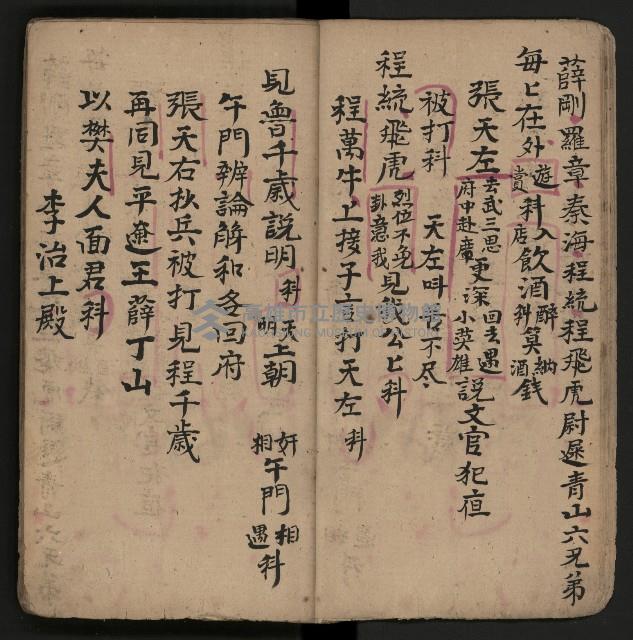 薛剛羅章秦海程統程飛虎尉遲青山六兄弟
每匕在外遊賞科入店飲酒醉科算納酒錢
張天左去武三思府中赴廣更深回去遇小英雄說文官犯夜
被打科 天左叫不尽
程統飛虎烈位不免卦意我見我公匕科
程萬牛上接子言打天左科
見魯千歲說明科天明上朝奸相午門相遇科
午門辨論解和各回府
張天右扒兵被打見程千歲
再同見平遼王薛丁山
以樊夫人面君科
李治上殿
高雄市立歷史博物館